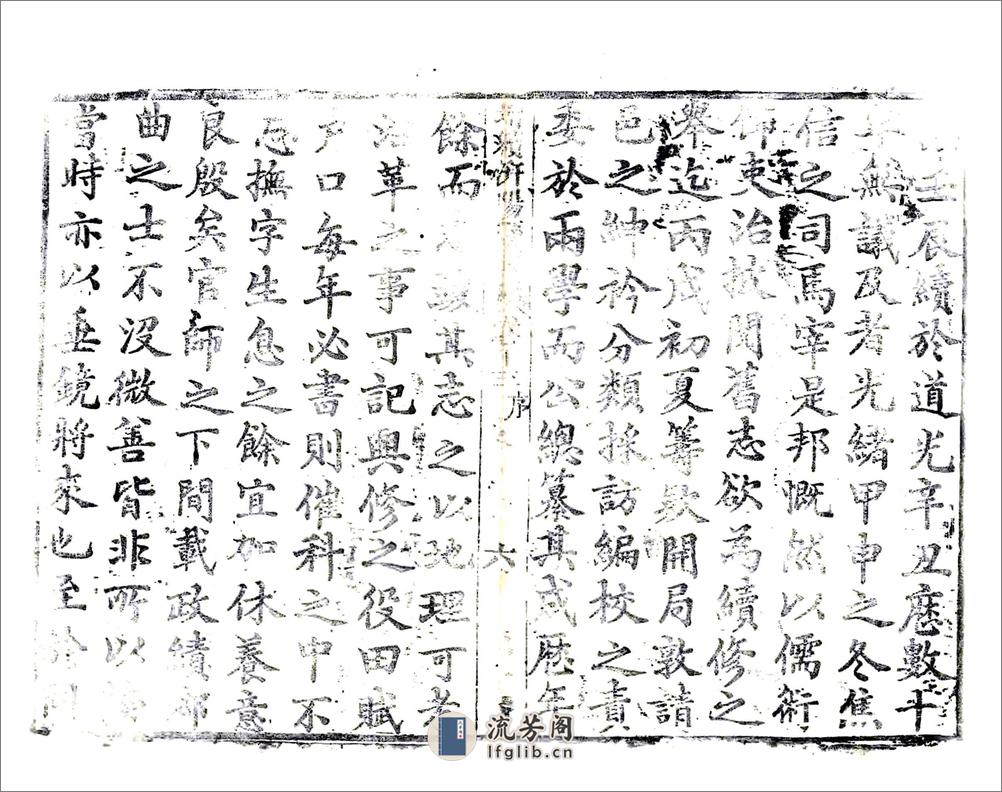 壬辰續於道光辛丑歷數十
年無議及者光緒甲申之冬焦
信之司馬宰是邦慨然以儒術
飾吏治披閱舊志欲為續修之
舉迄丙戌初夏籌欵開局敦請
邑之紳衿分類採訪編校之責
委於兩學而公總纂其成歷年
序
六
餘而 其志之以地理可考
沿革之事可記興修之役田賦
戶口每年必書則催科之中不
忘撫字生息之餘宜加休養意
良殷矣官師之下間載政績鄉
曲之士不没微善皆非所以
當時亦以垂鏡將來也至於
流芳阁
lfglib.cn